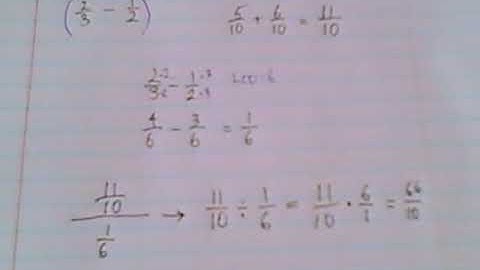 (2/3 - 1/2) 5/10 + 6/10 = 11/10
2·2/3·2 - 1·3/2·3 LCD=6
4/6 - 3/6 = 1/6
11/10 / 1/6 → 11/10 ÷ 1/6 = 11/10 · 6/1 = 66/10